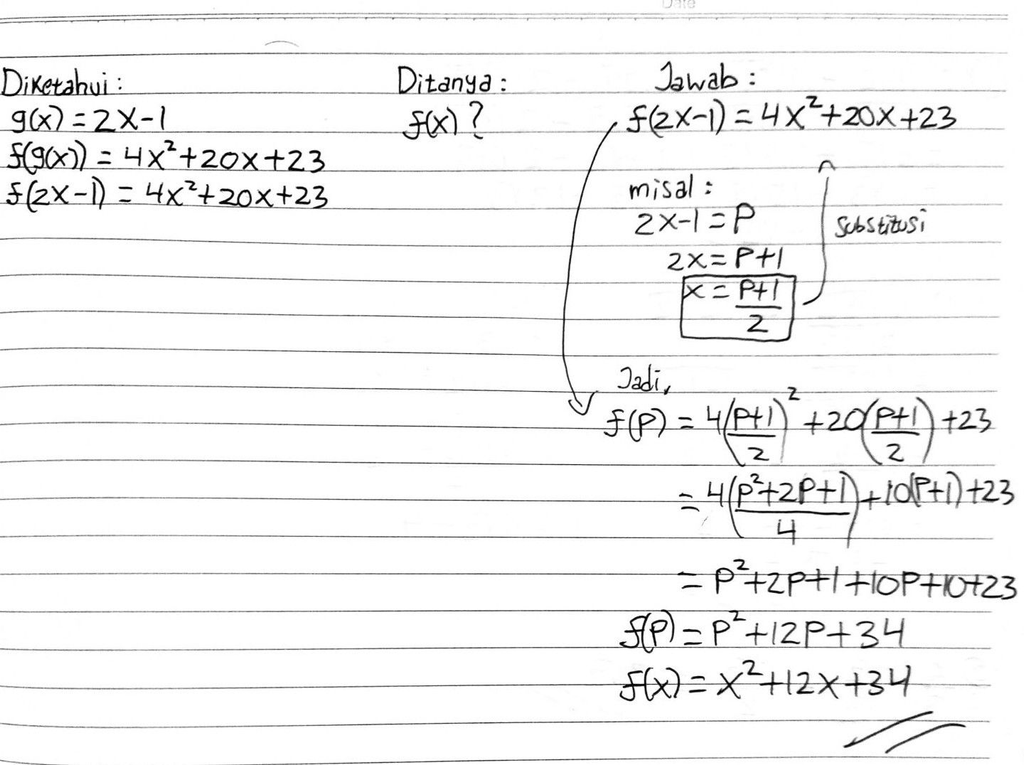 Date
Diketahui:
g(x) = 2x-1
f(g(x)) = 4x²+20x+23
f(2x-1) = 4x²+20x+23
Ditanya:
f(x) ?
Jawab:
f(2x-1) = 4x²+20x+23
misal:
2x-1 = P
2x = P+1
x = P+1/2
Substitusi
Jadi,
f(P) = 4(P+1/2)² + 20(P+1/2) + 23
= 4(P²+2P+1/4) + 10(P+1) + 23
= P²+2P+1+10P+10+23
f(P) = P²+12P+34
f(x) = x²+12x+34